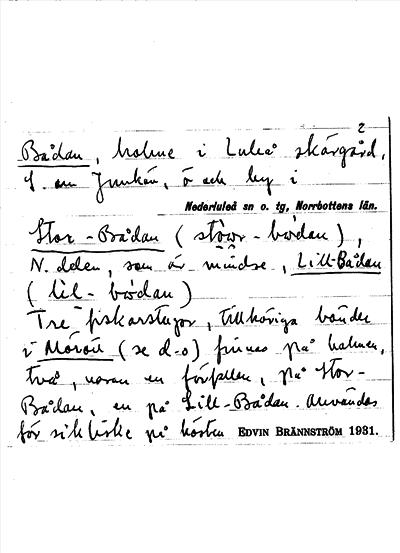 2
Bådan, holme i Luleå skärgård,
S. om Junkön, ö och by i
Nederluleå sn o. tg, Norrbottens län.
Stor-Bådan (stöwr-bödan),
N. delen, som är mindre, Lill-Bådan
(lil-bödan)
Tre fiskarstugor, tillhöriga bönder
i Mörön (se d-o) finnas på holmen,
två, varav en förfallen, på Stor-
Bådan, en på Lill-Bådan. Användas
för sikfiske på hösten EDVIN BRÄNNSTRÖM 1931.